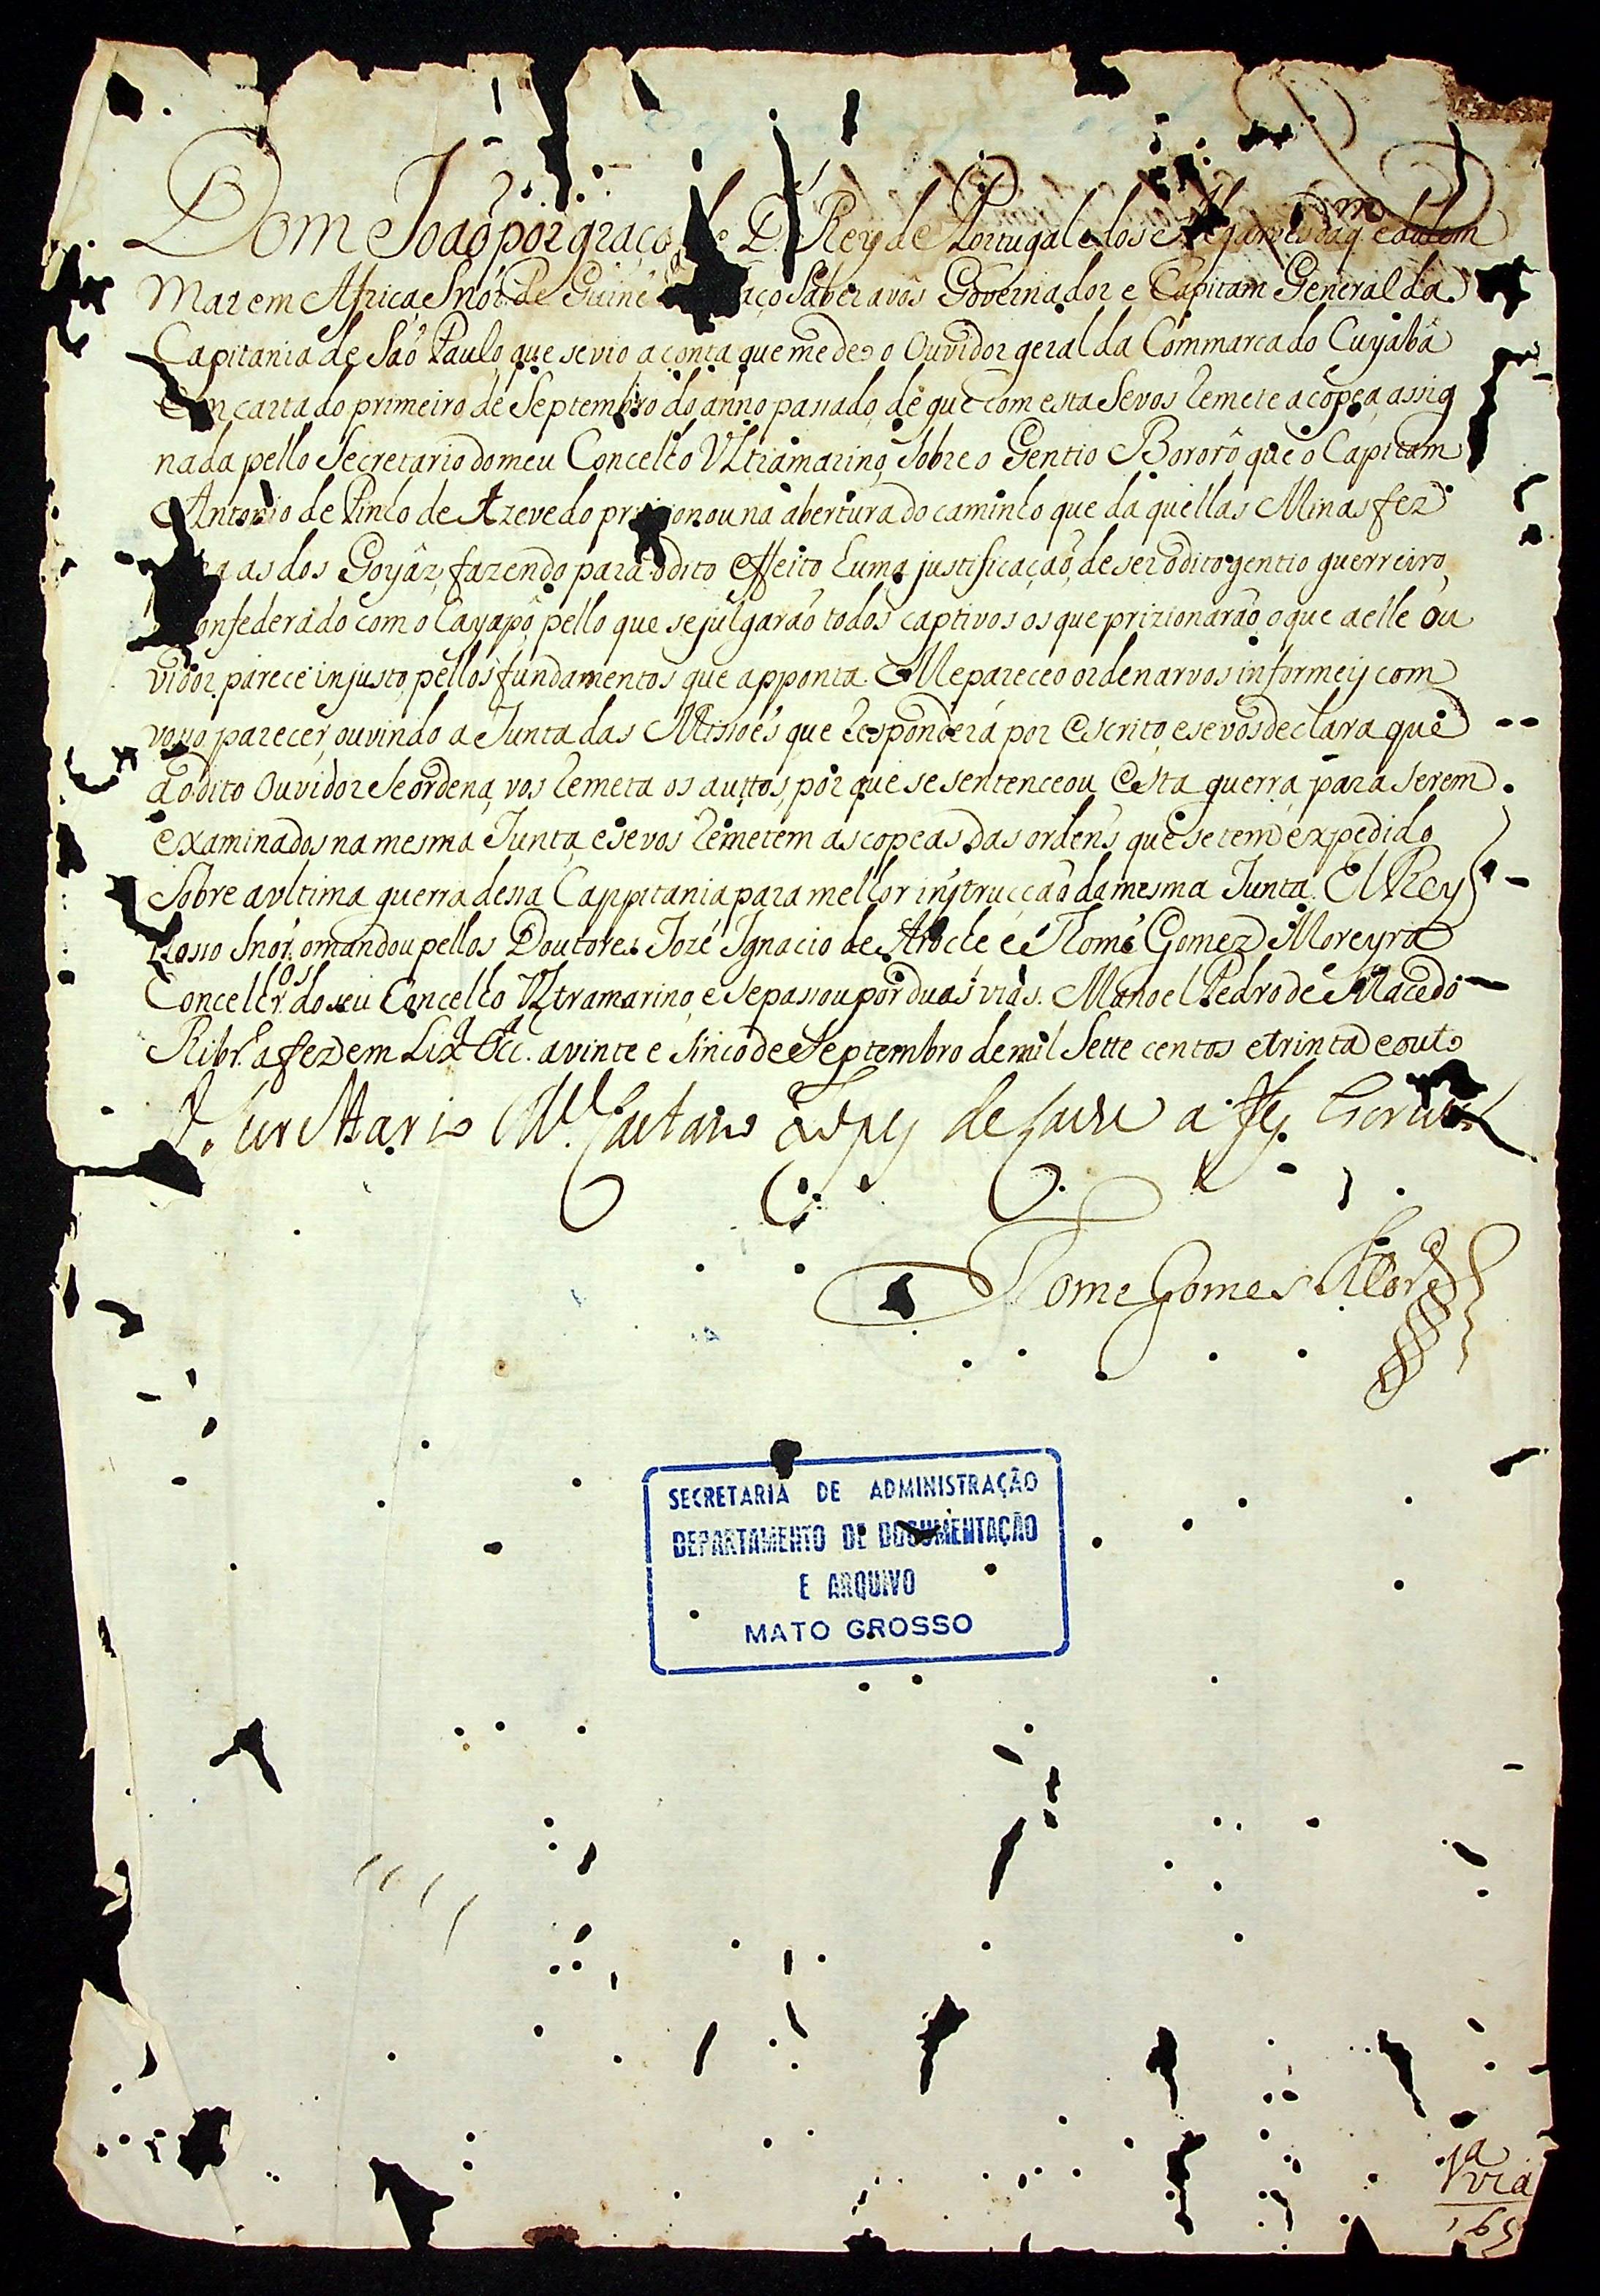 Dom João por graça de D.s Rey de Portugal e dos Algarves daq.m e dalem
Mar em Africa Snõr. de Guiné faço Saber a vós Governador e Capitam General da
Capitania de São Paulo, que se vio a conta que me deo o Ouvidor geral da Commarca do Cuyabâ
em carta do primeiro de Septembro do anno passado, de que com esta se vos remete a copea, assig
nada pello Secretario do meu Concelho Ultramarino, sobre o Gentio Bororô que o Capitam
Antonio de Pinho de Azevedo prizionou na abertura do caminho que da quellas Minas fez
para as dos Goyâz, fazendo para o dito effeito huma justificação, de ser o dito gentio guerreiro,
confederado com o Cayapô, pello que se julgarão todos captivos os que prizionarão, o que a elle Ou
vidor parece injusto, pellos fundamentos que apponta. Me pareceo ordenarvos informeij com
vosso parecer, ouvindo a Junta das Missoẽs que responderá por escrito, e se vos declara que
ao dito Ouvidor se ordena, vos remeta os auttos, por que se sentenceou esta guerra, para serem
examinados na mesma Junta, e se vos remetem as copeas das ordens que se tem expedido
sobre a ultima guerra dessa Cappitania para melhor instrucção da mesma Junta. El Rey
Nosso Snõr. o mandou pellos Doutores Jozé Ignacio de Aroche e Thomé Gomez Moreyra
Concelhr.os do seu Concelho Ultramarino, e se passou por duas vias. Manoel Pedro de Macedo
Ribr.o a fez em Lix.a Occ. a vinte e sinco de Septembro de mil sette centos e trinta e outo
O Secretario M.el Caetano Lopes de Lavre a fez escrever
Thome Gomes Mor.a
SECRETARIA DE ADMINISTRAÇÃO
DEPARTAMENTO DE DOCUMENTAÇÃO
E ARQUIVO
MATO GROSSO
1.a via
165